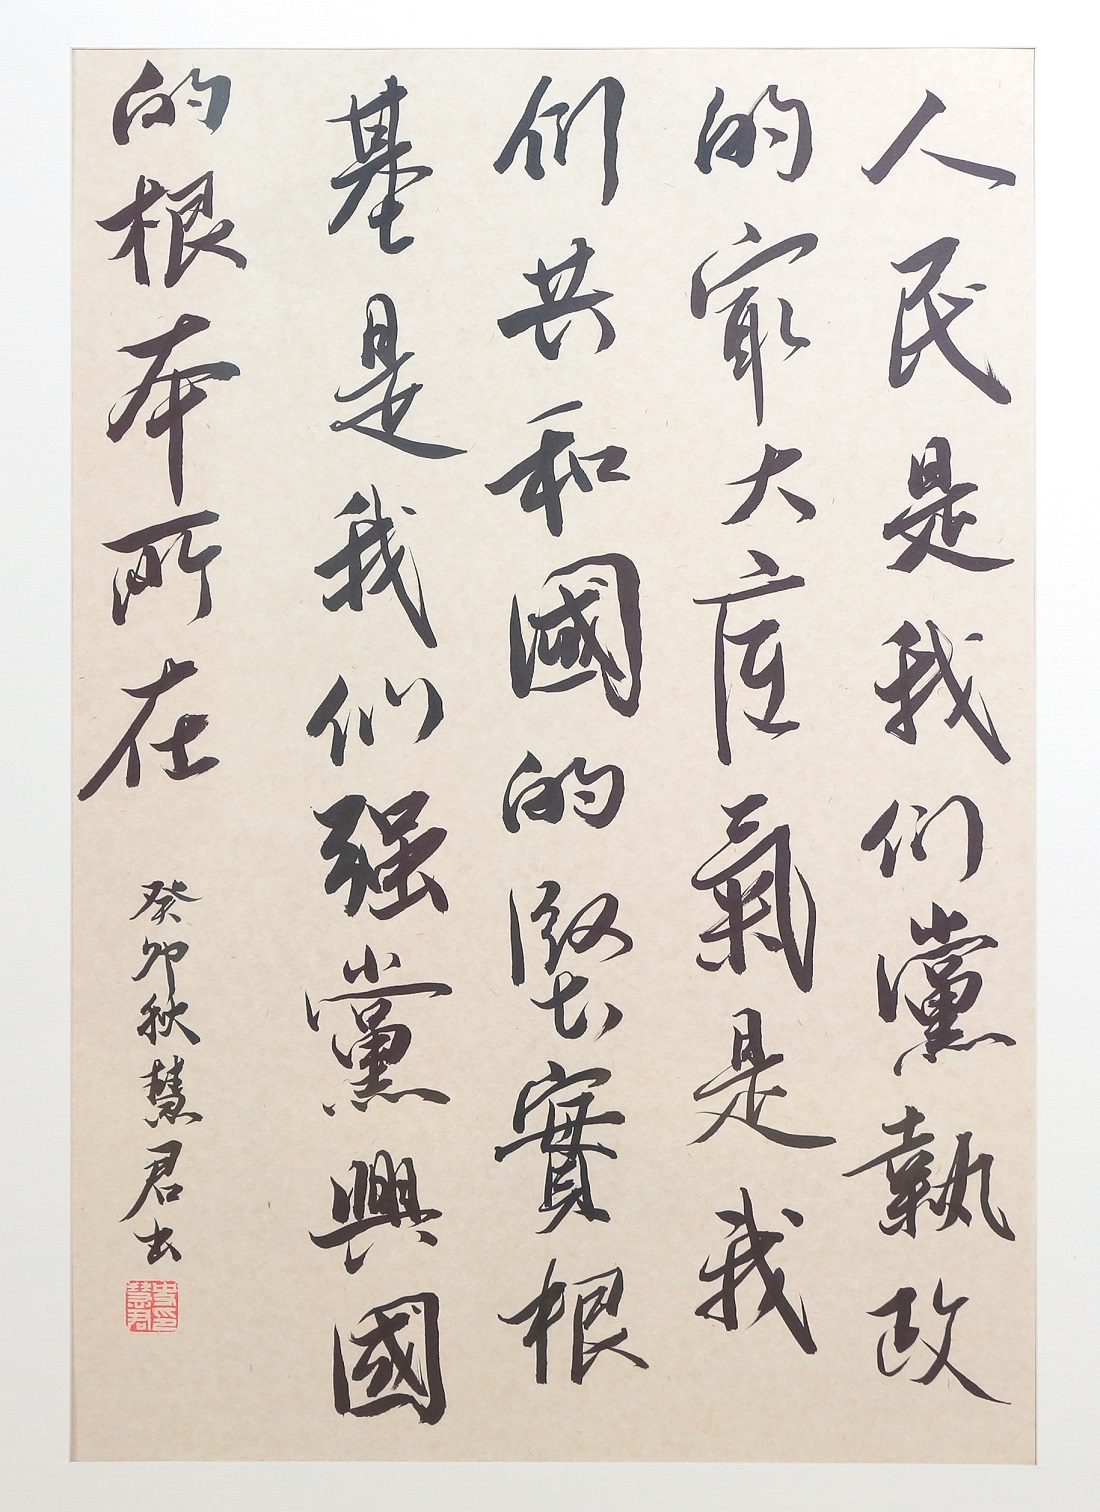 人民是我们黨執政
的最大底氣是我
们共和國的堅實根
基是我们强黨興國
的根本所在
癸卯秋慧君书